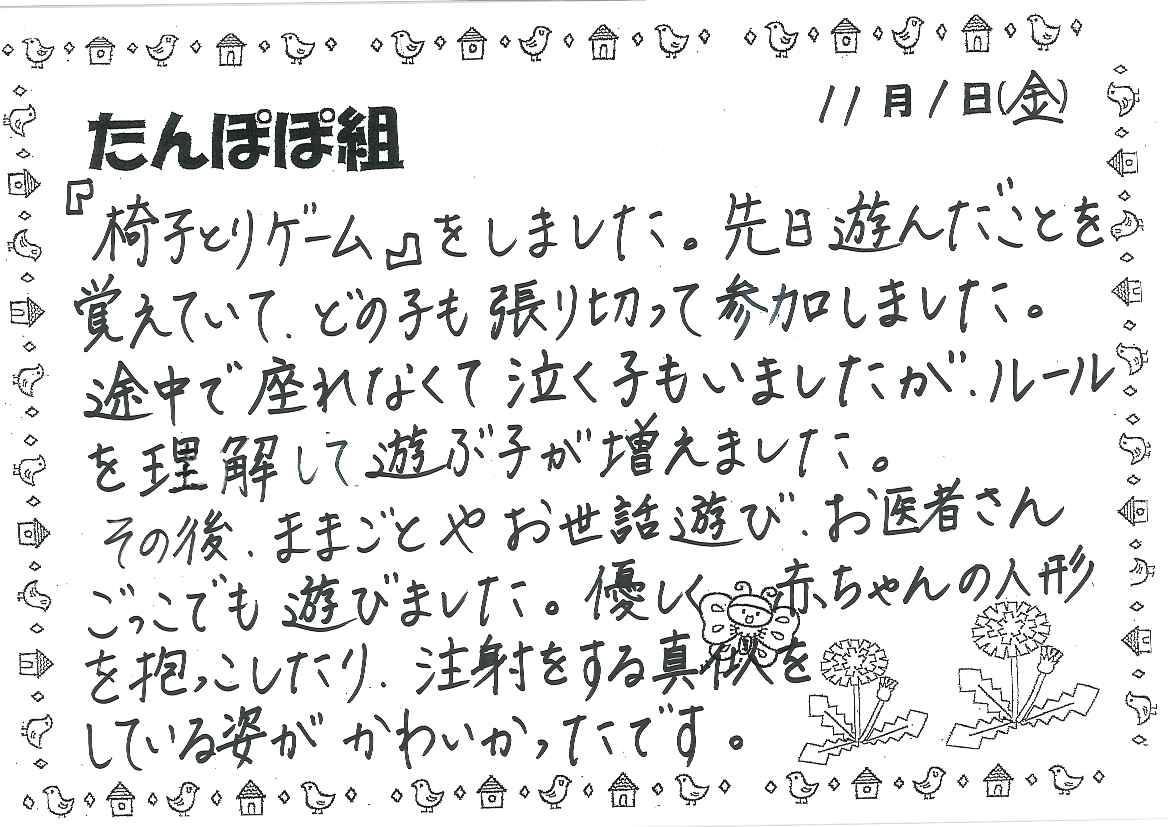 11月1日(金)
たんぽぽ組
『椅子とりゲーム』をしました。先日遊んだことを
覚えていて、どの子も張り切って参加しました。
途中で座れなくて泣く子もいましたが、ルール
を理解して遊ぶ子が増えました。
その後、ままごとやお世話遊び、お医者さん
ごっこでも遊びました。優しく赤ちゃんの人形
を抱っこしたり、注射をする真似を
している姿がかわいかったです。